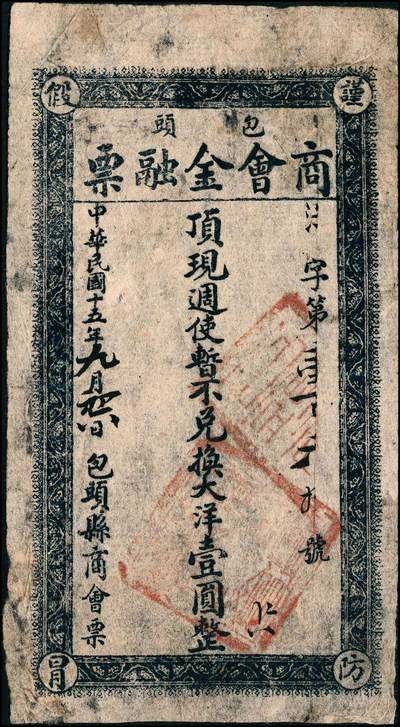 謹防假冒
包頭
商會金融票
字第
號
頂現週使暫不兌換大洋壹圓整
中華民國十五年九月廿六日包頭縣商會票